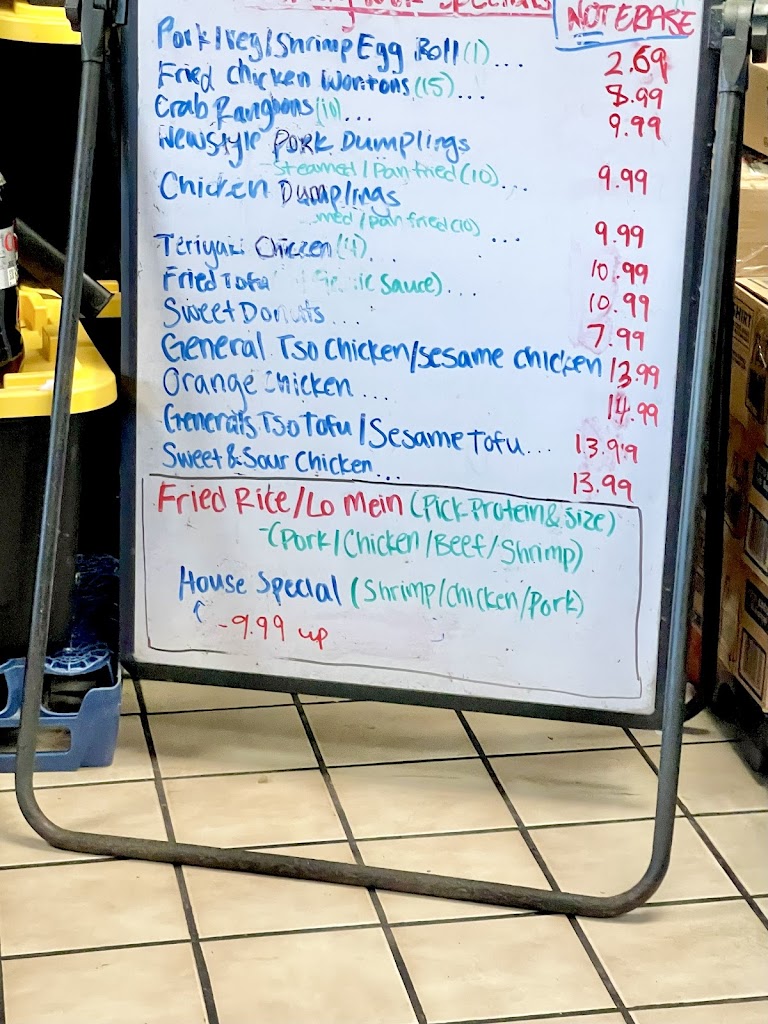 SPECIALS
NOT ERASE
Pork/Veg/Shrimp Egg Roll (1)... 2.69
Fried Chicken Wontons (15)... 8.99
Crab Rangoons (10)... 9.99
Newstyle Pork Dumplings
-Steamed/Pan fried (10)... 9.99
Chicken Dumplings
med/pan fried (10) ... 9.99
Teriyaki Chicken (4)... 10.99
Fried Tofu Sauce)... 10.99
Sweet Donuts... 7.99
General Tso Chicken/Sesame Chicken 13.99
Orange Chicken ... 14.99
Generals Tso Tofu/Sesame Tofu... 13.99
Sweet & Sour Chicken... 13.99
Fried Rice/Lo Mein (Pick Protein & Size)
-(Pork/Chicken/Beef/Shrimp)
House Special (Shrimp/Chicken/Pork)
-9.99 up